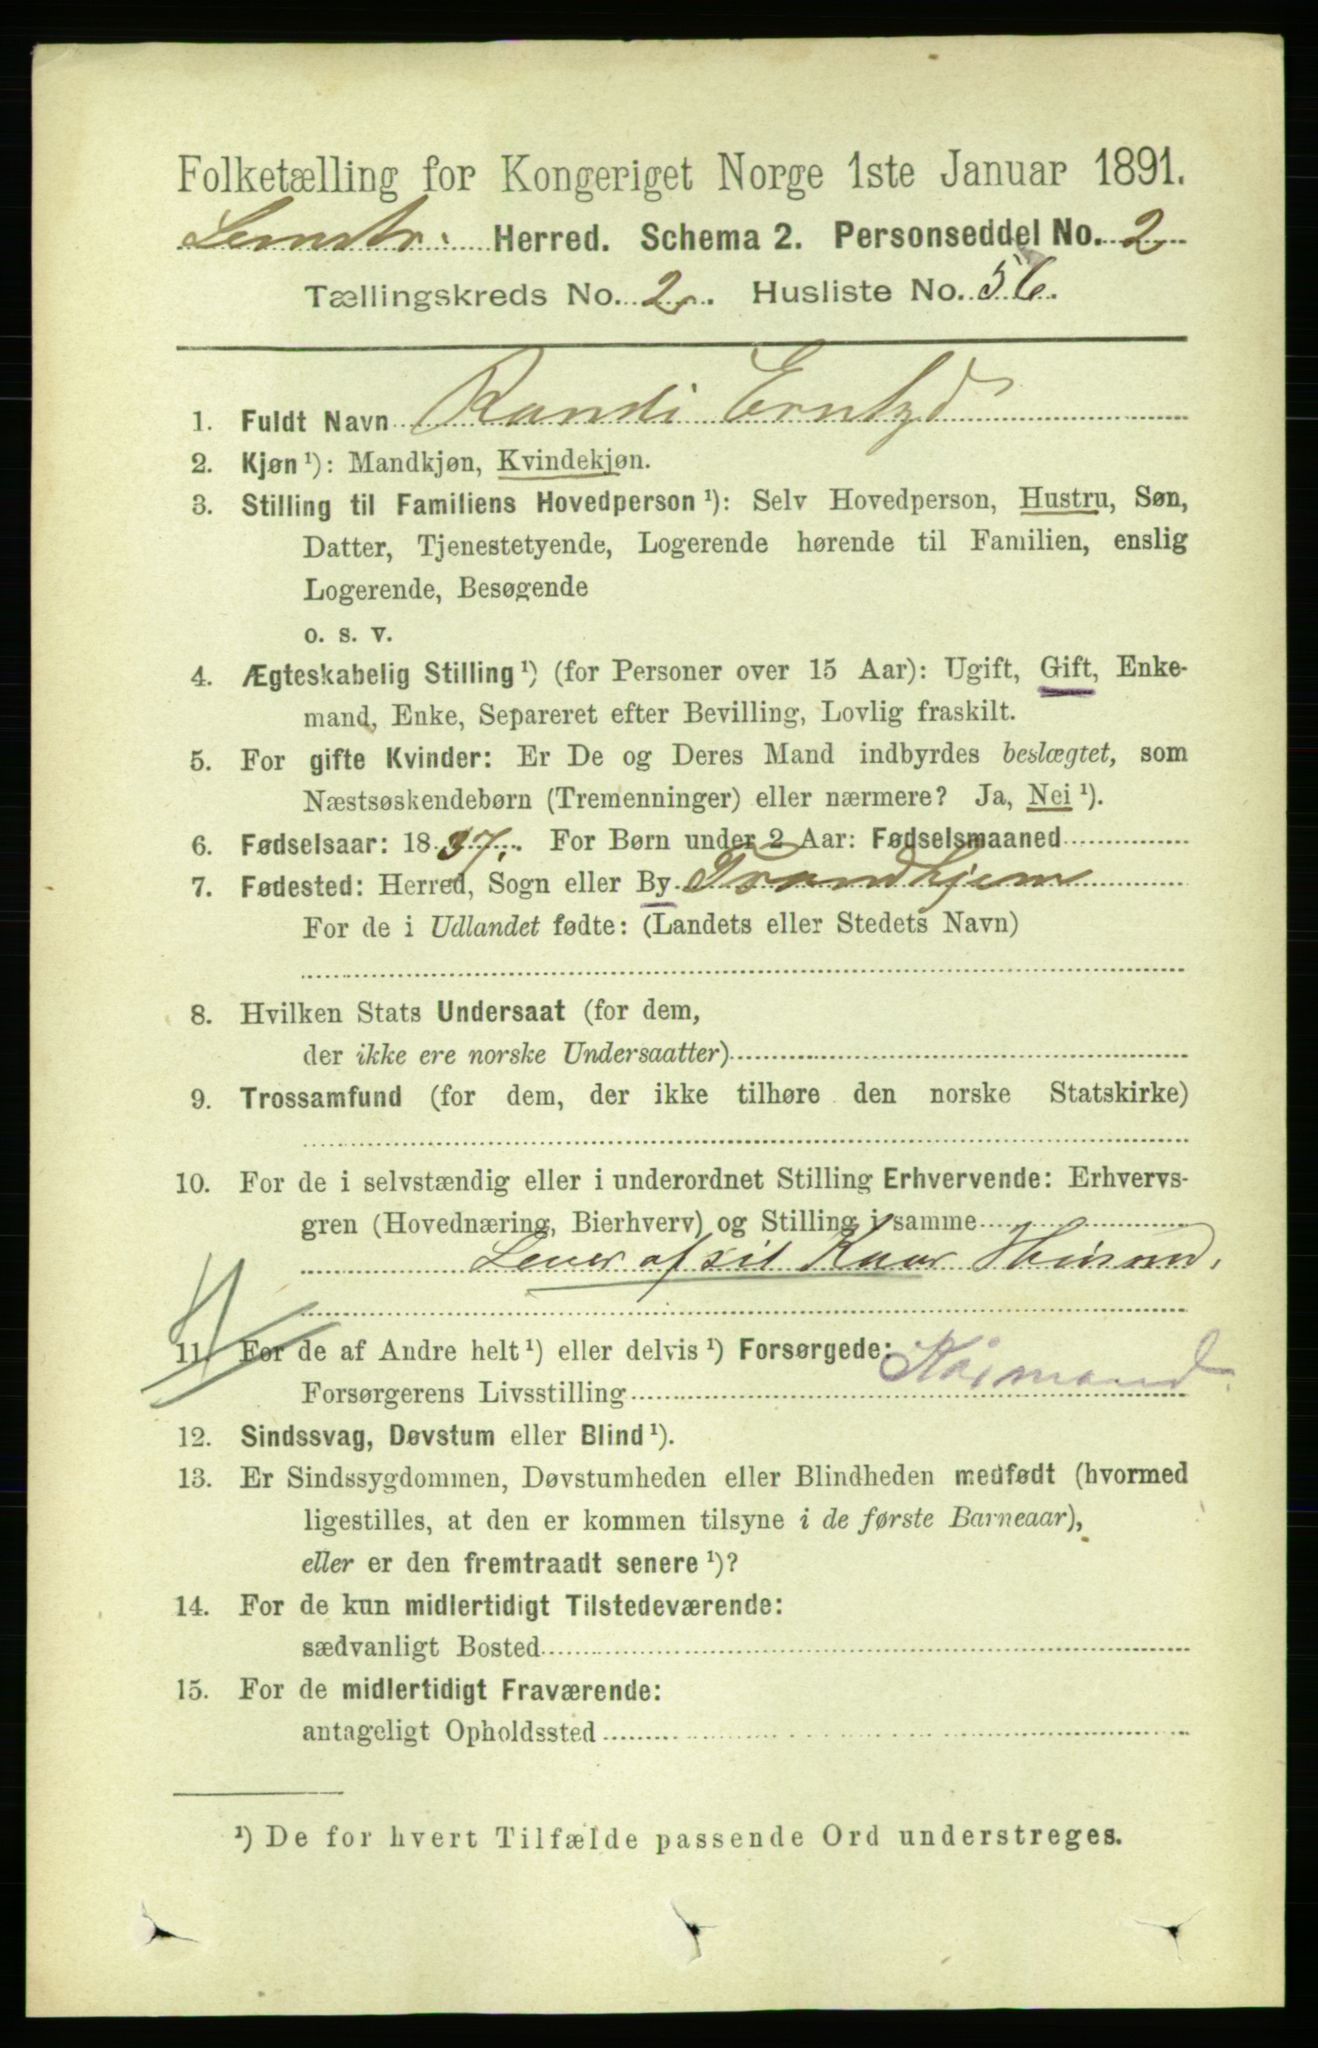 Folketælling for Kongeriget Norge 1ste Januar 1891.
Herred. Schema 2. Personseddel No. 2
Tællingskreds No. 2. Husliste No. 56.
1. Fuldt Navn Randi
2. Kjøn ¹): Mandkjøn, Kvindekjøn.
3. Stilling til Familiens Hovedperson ¹): Selv Hovedperson, Hustru, Søn,
Datter, Tjenestetyende, Logerende hørende til Familien, enslig
Logerende, Besøgende
o. s. v.
4. Ægteskabelig Stilling ¹) (for Personer over 15 Aar): Ugift, Gift, Enke-
mand, Enke, Separeret efter Bevilling, Lovlig fraskilt.
5. For gifte Kvinder: Er De og Deres Mand indbyrdes beslægtet, som
Næstsøskendebørn (Tremenninger) eller nærmere? Ja, Nei ¹).
6. Fødselsaar: 1837. For Børn under 2 Aar: Fødselsmaaned
7. Fødested: Herred, Sogn eller By Trondhjem
For de i Udlandet fødte: (Landets eller Stedets Navn)
8. Hvilken Stats Undersaat (for dem,
der ikke ere norske Undersaatter)
9. Trossamfund (for dem, der ikke tilhøre den norske Statskirke)
10. For de i selvstændig eller i underordnet Stilling Erhvervende: Erhvervs-
gren (Hovednæring, Bierhverv) og Stilling i samme
Lever af sit Kaar
11. For de af Andre helt ¹) eller delvis ¹) Forsørgede:
Forsørgerens Livsstilling Kårmand.
12. Sindssvag, Døvstum eller Blind ¹).
13. Er Sindssygdommen, Døvstumheden eller Blindheden medfødt (hvormed
ligestilles, at den er kommen tilsyne i de første Barneaar),
eller er den fremtraadt senere ¹)?
14. For de kun midlertidigt Tilstedeværende:
sædvanligt Bosted
15. For de midlertidigt Fraværende:
antageligt Opholdssted
¹) De for hvert Tilfælde passende Ord understreges.